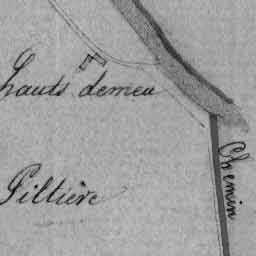 hauts demeu
Piltière
Chemin